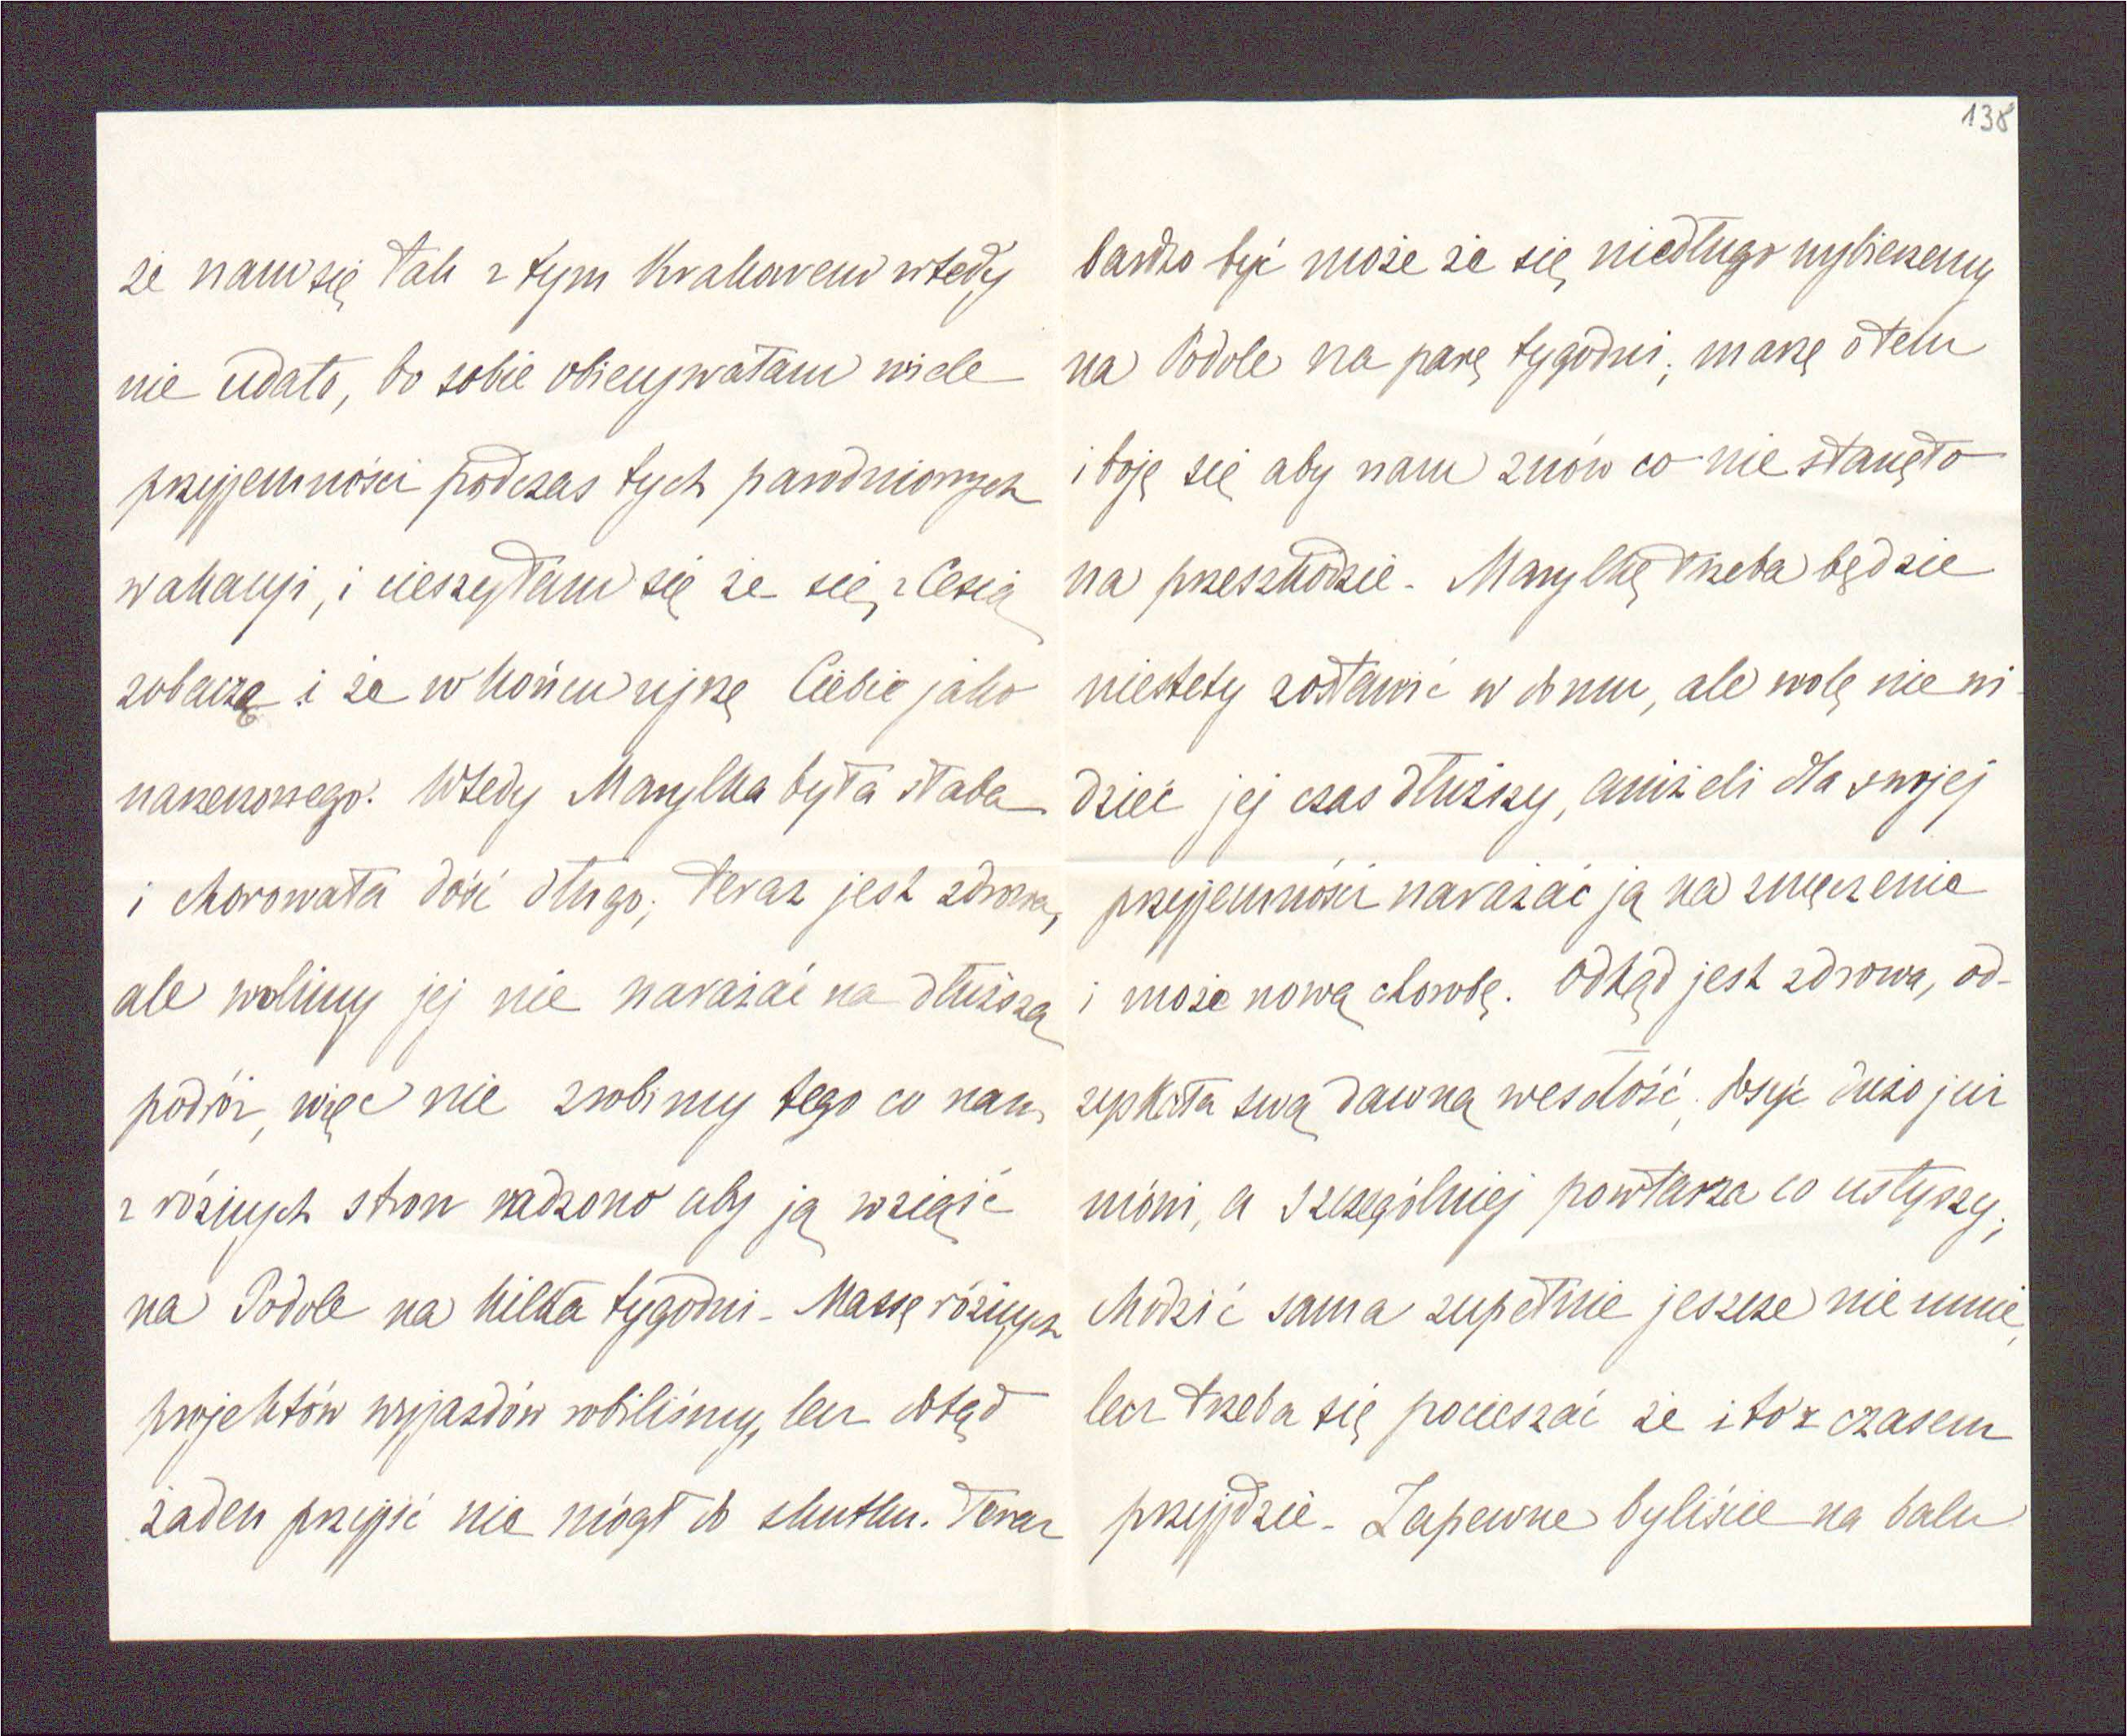 że nam się tak z tym Krakowem wtedy
nie udało, bo sobie obiecywałam wiele
przyjemności podczas tych parodniowych
wakacyi, i cieszyłam się że się z Cesią
zobaczę i że w końcu ujrzę Ciebie jako
narzeczonego. Wtedy Marylka była słaba
i chorowała dość długo; teraz jest zdrowa,
ale wolimy jej nie narażać na dłuższą
podróż, więc nie zrobimy tego co nam
z różnych stron radzono aby ją wziąść
na Podole na kilka tygodni - Massę różnych
projektów wyjazdów robiliśmy, lecz dotąd
żaden przyjść nie mógł do skutku. Teraz
138
bardzo być może że się niedługo wybierzemy
na Podole na parę tygodni; marzę o tem
i boję się aby nam znów co nie stanęło
na przeszkodzie - Marylkę trzeba będzie
niestety zostawić w domu, ale wolę nie wi-
dzieć jej czas dłuższy, aniżeli dla swojej
przyjemności narażać ją na zmęczenie
i może nową chorobę. Odkąd jest zdrowa, od-
zyskała swą dawną wesołość; dosyć dużo już
mówi, a szczególniej powtarza co usłyszy;
chodzić sama zupełnie jeszcze nie umie,
lecz trzeba się pocieszać że i to z czasem
przyjdzie - Zapewne byliście na balu